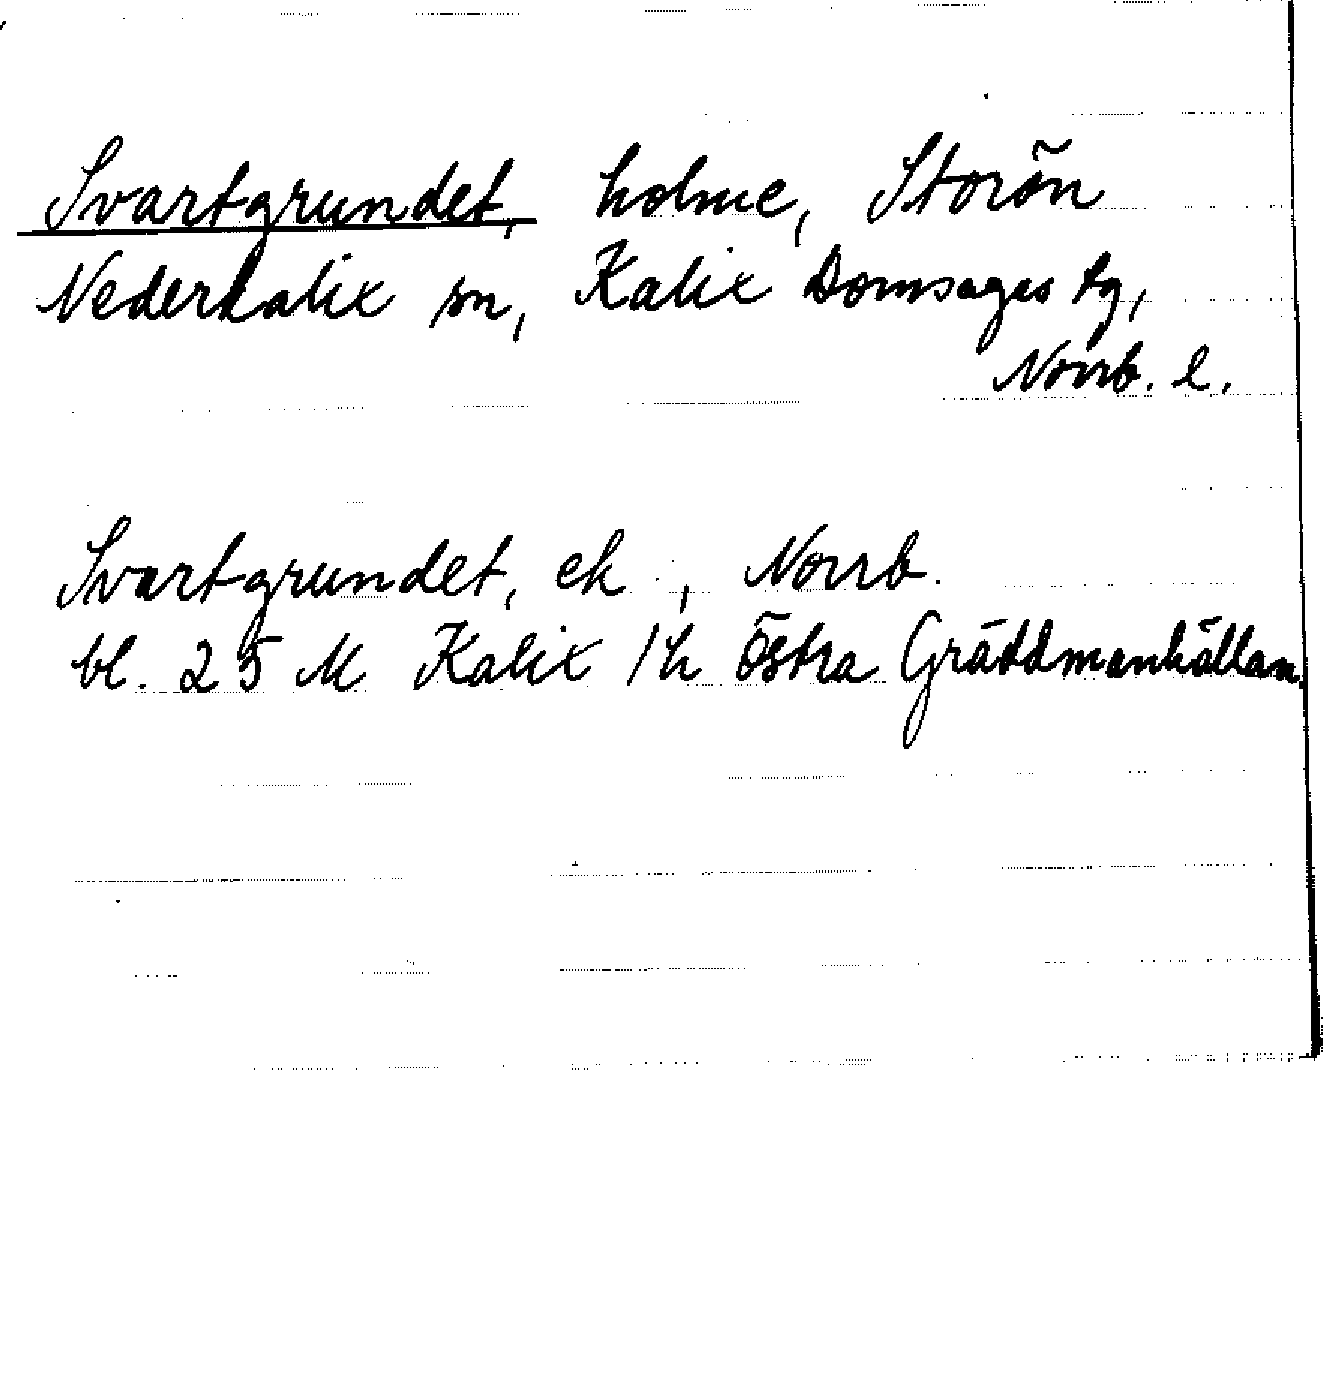 Svartgrundet, holme, Storön
Nederkalix sn, Kalix Domsagas tg,
Norrb. l.
Svartgrundet, ek , Norrb.
bl. 25 M Kalix 1h Östra Gräddmanhällan.